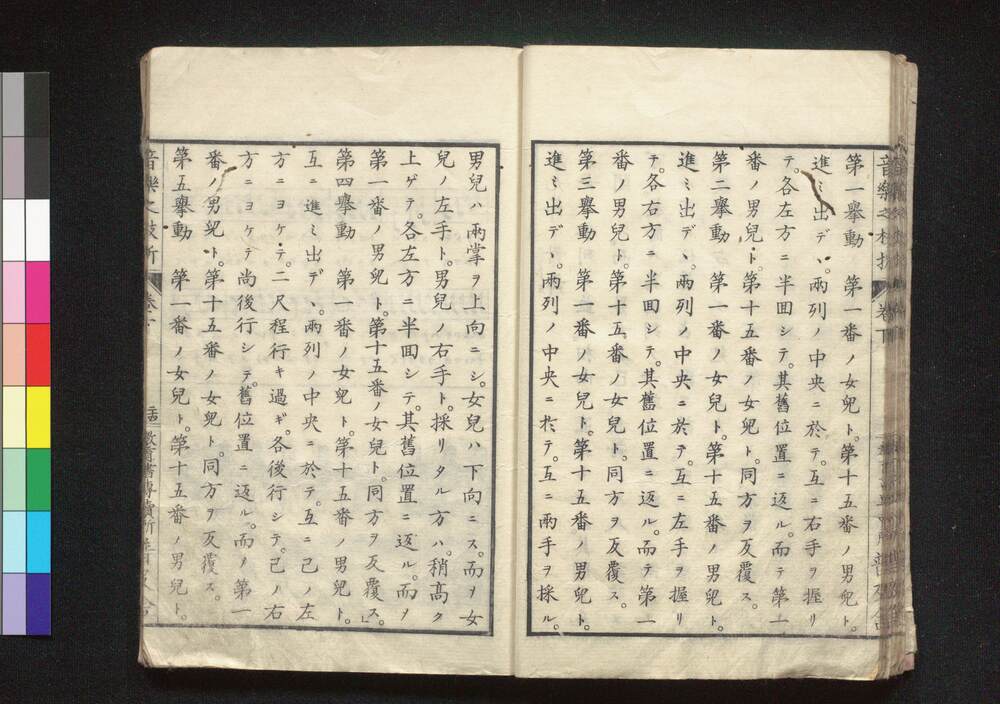 第一擧動　第一番ノ女兒ト。第十五番ノ男兒ト。
進ミ出デヽ。兩列ノ中央ニ於テ。互ニ右手ヲ握リ
テ。各左方ニ半囬シテ。其舊位置ニ返ル。而テ第一
番ノ男兒ト。第十五番ノ女兒ト。同方ヲ反覆ス。
第二擧動　第一番ノ女兒ト。第十五番ノ男兒ト。
進ミ出デヽ。兩列ノ中央ニ於テ。互ニ左手ヲ握リ
テ。各右方ニ半囬シテ。其舊位置ニ返ル。而テ第一
番ノ男兒ト。第十五番ノ女兒ト。同方ヲ反覆ス。
第三擧動　第一番ノ女兒ト。第十五番ノ男兒ト。
進ミ出デヽ。兩列ノ中央ニ於テ。互ニ兩手ヲ採ル。
男兒ハ兩掌ヲ上向ニシ。女兒ハ下向ニス。而ヲ女
兒ノ左手ト。男兒ノ右手ト。採リタル方ハ。稍高ク
上ゲテ。各左方ニ半囬シテ。其舊位置ニ返ル。而ヲ
第一番ノ男兒ト。第十五番ノ女兒ト。同方ヲ反覆ス。
第四擧動　第一番ノ女兒ト。第十五番ノ男兒ト。
互ニ進ミ出デヽ。兩列ノ中央ニ於テ。互ニ己ノ左
方ニヨケテ。二尺程行キ過ギ。各後行シテ。己ノ右
方ニヨケテ尚後行シテ。舊位置ニ返ル。而ノ第一
番ノ男兒ト。第十五番ノ女兒ト。同方ヲ反覆ス。
第五擧動　第一番ノ女兒ト。第十五番ノ男兒ト。